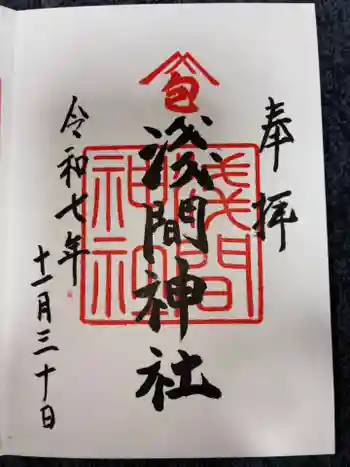 奉拝
包
浅間神社
浅間神社
令和七年
十一月三十日